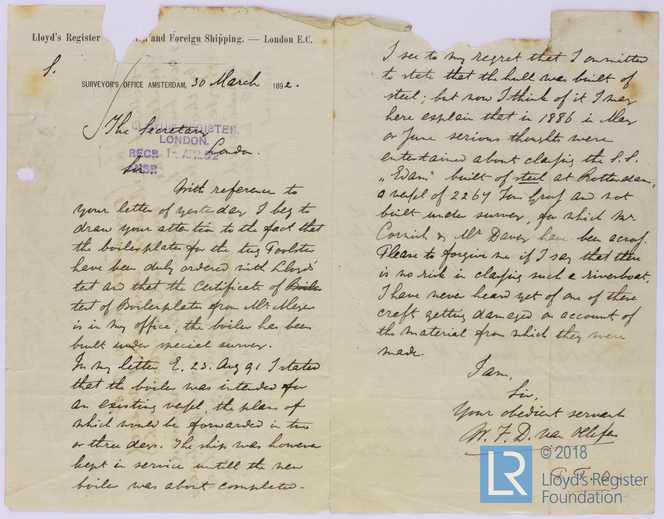 Lloyd's Register and Foreign Shipping. — London E.C.
SURVEYOR'S OFFICE AMSTERDAM, 30 March 1892.
The Secretary
REGISTER.
LONDON.
RECD 1- APR 92
London.
Sir,
With reference to
your letter of yesterday I beg to
draw your attention to the fact that
the boilerplates for the tug
have been duly ordered with Lloyds'
test and that the Certificate of Boiler
test of Boilerplates from Mr. Meyer
is in my office, the boiler has been
built under special survey.
In my letter E. 23. Aug 91 I stated
that the boiler was intended for
an existing vessel, the plans of
which would be forwarded in two
or three days. The ship was however
kept in service untill the new
boiler was about completed.
I see to my regret that I ommitted
to state that the hull was built of
steel; but now I think of it I may
here explain that in 1886 in May
or June serious thoughts were
entertained about classing the S.S.
„Edam" built of steel at Rotterdam,
a vessel of 2267 Ton Gross and not
built under survey, for which Mr.
Cornish & Mr Davey have been across.
Please to forgive me if I say that there
is no risk in classing such a riverboat,
I have never heard yet of one of these
craft getting damaged on account of
the material from which they were
made.
I am,
Sir,
Your obedient servant
W. F. D. van
P.T.O.
LR
© 2018
Lloyd's Register
Foundation